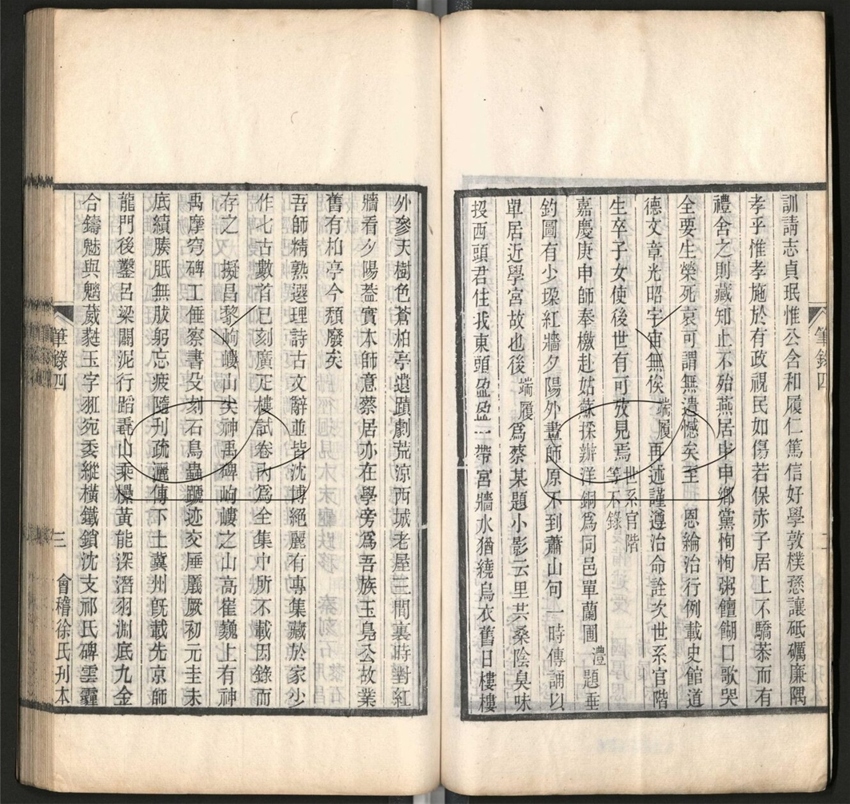 訓請志貞珉惟公含和履仁篤信好學敦樸慈讓砥礪廉隅
孝乎惟孝施於有政視民如傷若保赤子居上不驕恭而有
禮舍之則藏知止不殆燕居申申鄉黨恂恂粥饘餬口歌哭
全要生榮死哀可謂無遺憾矣至 恩綸治行例載史館道
德文章光昭宇宙無俟端履再述謹遵治命詮次世系官階
生卒子女使後世有可攷見焉世系官階等不錄
嘉慶庚申師奉檄赴姑蘇採辦洋銅爲同邑單蘭圃澧題垂
釣圖有少梁紅牆夕陽外畫師原不到蕭山句一時傳誦以
單居近學宮故也後端履爲蔡某題小影云里共桑陰臭味
投西頭君住我東頭盈盈一帶宮牆水猶繞烏衣舊日樓樓
筆錄四
二
外參天樹色蒼柏亭遺蹟劇荒涼西城老屋三間裏時對紅
牆看夕陽葢實本師意蔡居亦在學旁爲吾族玉鳧公故業
舊有柏亭今頹廢矣
吾師精熟選理詩古文辭並皆沈博絕麗有專集藏於家少
作七古數首已刻廣疋樓試卷內爲全集中所不載因錄而
存之 擬昌黎岣嶁山矣神禹碑岣嶁之山高崔巍上有神
禹摩穹碑工倕察書殳刻石鳥蟲蹤迹交厜㕒厥初元圭未
底績腠胝無胈躬忘疲隨刋疏灑傳下土冀州旣載先京師
龍門後鑿呂梁闢泥行蹈毳山乘樏黃能深潛羽淵底九金
合鑄魅與魑葳蕤玉字
宛委縱橫鐵鎖沈支祁氏碑雲霾
筆錄四
三
會稽徐氏刋本